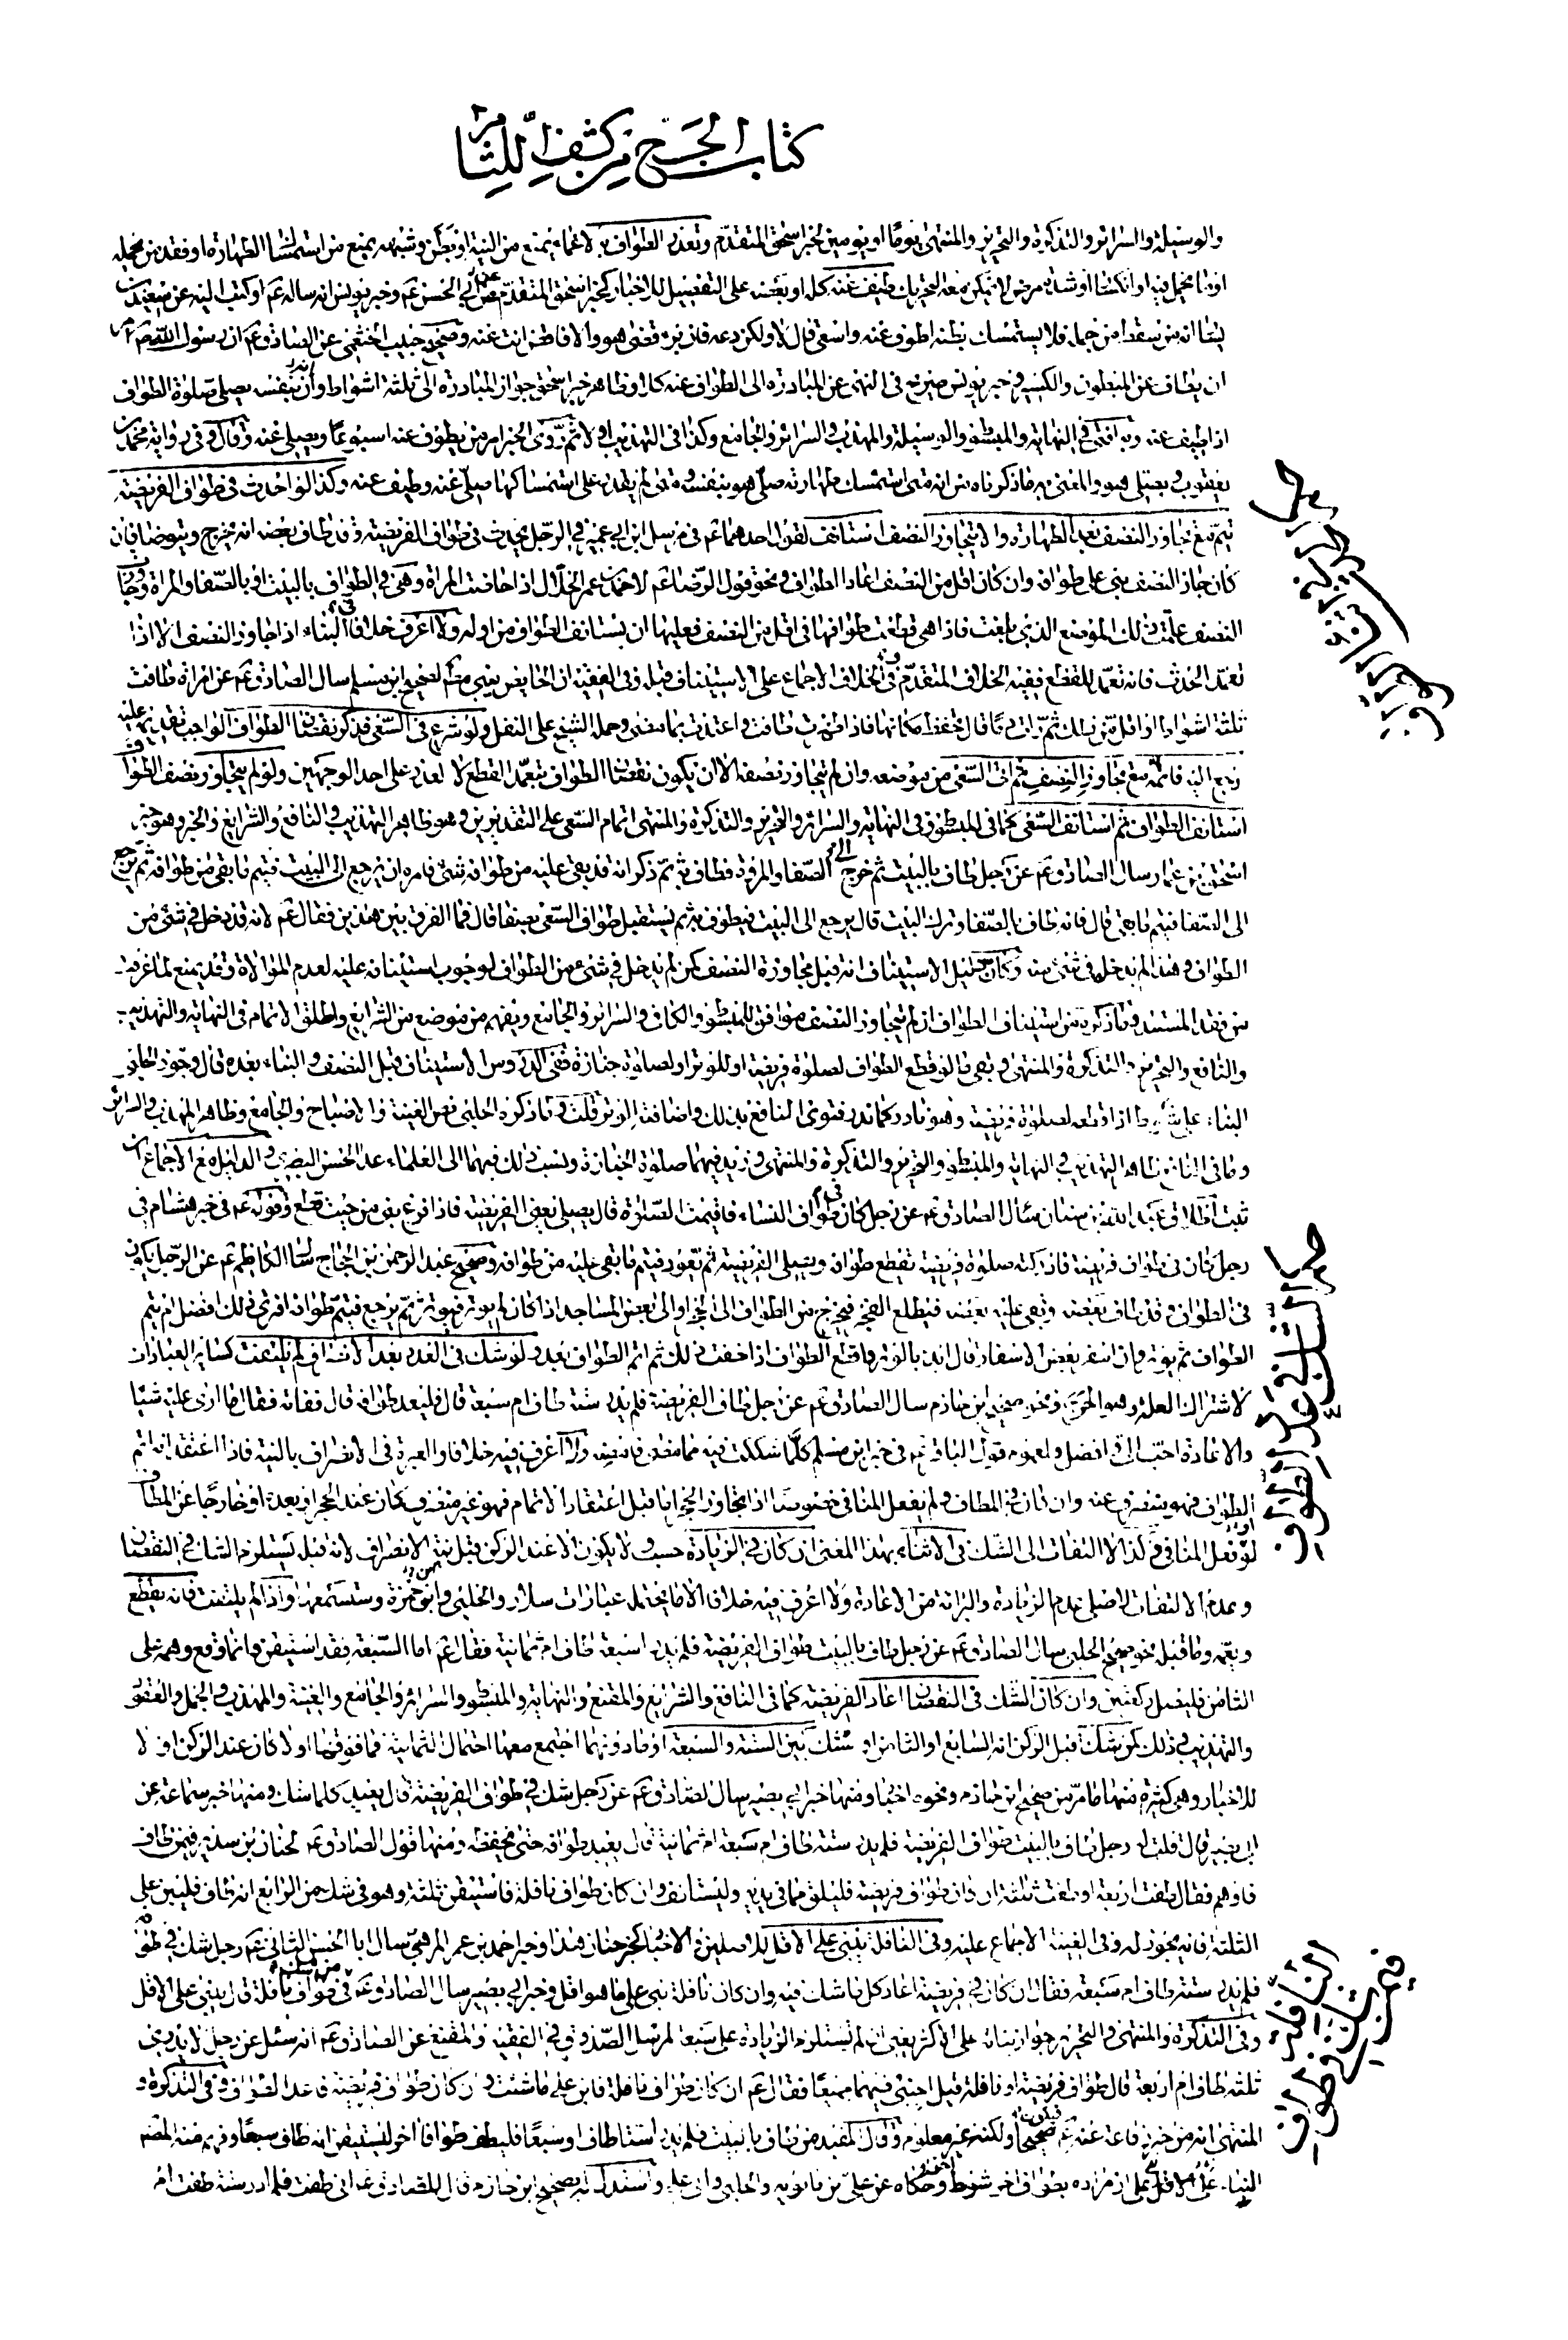 كتاب الحج من كشف اللثام
والوسيلة والسرائر والتذكرة والتحرير والمنتهى يوما او يومين لخبر اسحق المتقدم وتعذر العطواف به لاغماء يمنع من النية او بطن وشبهه يمنع من استمساك الطهارة او فقد من يحمله
او ما يحمل فيه او انكسار او شدة مرض لا يمكن معه التحريك طيف عنه كله او بعضه على التفصيل للاخبار كخبر اسحق المتقدم عن ابي الحسن ع وخبر يونس انه ساله ع او كتب اليه عن سعيد بن
يسار انه سقط من جمله فلا يستمسك بطنه اطوف عنه واسعى قال لا ولكن دعه فان برء قضى هو والا فاقض انت عنه وصحيح حبيب الخثعمي عن الصادق ع ان رسول الله ص امر
ان يطاف عن المبطون والكسير وخبر يونس صريح في النهي عن المبادرة الى الطواف عنه كما ان ظاهر خبر اسحق جواز المبادرة الى ثلثة اشواط وان بنفسه يصلي صلوة الطواف
اذا طيف عنه وبه افتى في النهاية والمبسوط والوسيلة والمهذب والسرائر والجامع وكذا في التهذيب اولا ثم روى الخبر امر من يطوف عنه اسبوعا ويصلي عنه وقال وفي رواية محمد بن
يعقوب ويصلي هو والمعنى به ما ذكرناه من انه متى استمسك طهارته صلى هو بنفسه ومتى لم يقدر على استمساكها صلى عنه وطيف عنه وكذا لو احدث في طواف الفريضة
يتم مع تجاوز النصف بعد الطهارة والا يتجاوز النصف استانف لقول احدهما ع في مرسل ابن ابي عمير في الرجل يحدث في طواف الفريضة وقد طاف بعضه انه يخرج ويتوضا فان
كان جاز النصف بنى على طوافه وان كان اقل من النصف اعاد الطواف ونحوه قول الرضا ع لاحمد بن عمر الحلال اذا حاضت المراة وهي في الطواف بالبيت او بالصفا والمروة وجاوزت
النصف علمت ذلك الموضع الذي بلغت فاذا هي قطعت طوافها في اقل من النصف فعليها ان تستانف الطواف من اوله ولا اعرف خلافا في البناء اذا جاوز النصف الا اذا
تعمد الحدث فانه تعمد للقطع ففيه الخلاف المتقدم وفي الخلاف الاجماع على الاستيناف قبله وفي الفقيه ان الحايض تبني مطلقا لصحيح ابن مسلم سال الصادق ع عن امراة طافت
ثلثة اشواط او اقل من ذلك ثم رات دما قال تحفظ مكانها فاذا طهرت طافت واعتدت بما مضى وحمله الشيخ على النفل ولو شرع في السعي فذكر نقصان الطواف الواجب تقديمه عليه
رجع اليه فاتمه مع تجاوز النصف ثم اتم السعي من موضعه وان لم يتجاوز نصفه الا ان يكون نقصان الطواف بتعمد القطع لا لعذر على احد الوجهين ولو لم يتجاوز نصف الطواف
استانف الطواف ثم استانف السعي كما في المبسوط وفي النهاية والسرائر والتحرير والتذكرة والمنتهى اتمام السعي على التقديرين وهو ظاهر التهذيب والنافع والشرايع والخبر وهو خبر
اسحق بن عمار سال الصادق ع عن رجل طاف بالبيت ثم خرج الى الصفا والمروة فطاف به ثم ذكر انه قد بقي عليه من طوافه شئ فامره ان يرجع الى البيت فيتم ما بقي من طوافه ثم يرجع
الى الصفا فيتم ما بقي قال فانه طاف بالصفا وترك البيت قال يرجع الى البيت فيطوف به ثم يستقبل طواف السعي بصفا قال فما الفرق بين هذين فقال ع لانه قد دخل في شئ من
الطواف وهذا لم يدخل في شئ منه وكان دليل الاستيناف انه قبل مجاوزة النصف كمن لم يدخل في شئ من الطواف لوجوب استينافه عليه لعدم الموالاة وقد يمنع لما عرفت
من فقد المستند وما ذكره من استيناف الطواف ان لم يتجاوز النصف موافق للمبسوط والكافي والسرائر والجامع ويفهم من موضع من الشرايع واطلق الاتمام في النهاية والتهذيب
والنافع والتحرير والتذكرة والمنتهى وبقي ما لو قطع الطواف لصلوة فريضة او للوتر او لصلوة جنازة ففي الدروس الاستيناف قبل النصف والبناء بعده قال وجوز الحلبي
البناء على شوط اذا قطعه لصلوة فريضة وهو نادر كما ندر فتوى النافع بذلك واضافته الوتر قلت وما ذكره الحلبي نص الغنية والاصباح والجامع وظاهر المهذب والسرائر
وما في النافع ظاهر التهذيب والنهاية والمبسوط والتحرير والتذكرة والمنتهى وزيد فيهما صلوة الجنازة ونسب ذلك فيهما الى العلماء عدا الحسن البصري والدليل مع الاجماع ان
ثبت اطلاق عبد الله بن سنان سال الصادق ع عن رجل كان في طواف النساء فاقيمت الصلوة قال يصلي يعني الفريضة فاذا فرغ بنى من حيث قطع وقوله ع في خبر هشام في
رجل كان في طواف فريضة فادركته صلوة فريضة يقطع طوافه ويصلي الفريضة ثم يعود فيتم ما بقي عليه من طوافه وصحيح عبد الرحمن بن الحجاج سال الكاظم ع عن الرجل يكون
في الطواف وقد طاف بعضه وبقي عليه بعضه فيطلع الفجر فيخرج من الطواف الى الحجر او الى بعض المساجد اذا كان لم يوتر فيوتر ثم يرجع فيتم طوافه افترى ذلك افضل ام يتم
الطواف ثم يوتر وان اسفر بعض الاسفار قال ابدء بالوتر واقطع الطواف اذا خفت ذلك ثم اتم الطواف بعد ولو شك في العدد بعد الانصراف لم يلتفت كساير العبادات
لاشتراك العلة وهو الحرج ونحو صحيح ابن حازم سال الصادق ع عن رجل طاف الفريضة فلم يدر ستة طاف ام سبعة قال فليعد طوافه قال ففاته فقال ما ارى عليه شيئا
والاعادة احب الي وافضل ولعموم قول الباقر ع في خبر ابن مسلم كلما شككت فيه مما مضى فامضه ولا اعرف فيه خلافا والعبرة في الانصراف بالنية فاذا اعتقد انه اتم
الطواف فهو منصرف عنه وان كان في المطاف ولم يفعل المنافي خصوصا اذا تجاوز الحجر اما قبل اعتقاد الاتمام فهو غير منصرف كان عند الحجر او بعده او خارجا عن المطاف
او فعل المنافي وكذا لا التفات الى الشك في الاثناء بهذا المعنى ان كان في الزيادة حسب ولا يكون الا عند الركن قبل نية الانصراف لانه قبله يستلزم الشك في النقصان
وعدم الالتفات لاصل عدم الزيادة والبرائة من الاعادة ولا اعرف فيه خلافا الا ما يحتمله عبارات سلار والحلبي وابن حمزة وستسمعها واذا لم يلتفت فانه يقطع
ويتمه وما قبله نحو صحيح الحلبي سال الصادق ع عن رجل طاف بالبيت طواف الفريضة فلم يدر اسبعة طاف ام ثمانية فقال ع اما السبعة فقد استيقن وانما وقع وهمه على
الثامن فليصل ركعتين وان كان الشك في النقصان اعاد الفريضة كما في النافع والشرايع والمقنع والنهاية والمبسوط والسرائر والجامع والغنية والمهذب والجمل والعقود
والتهذيب وذلك كمن شك قبل الركن انه السابع او الثامن او شك بين الستة والسبعة او ما دونهما اجتمع معها احتمال الثمانية فما فوقها اولا كان عند الركن او لا
للاخبار وهي كثيرة منها ما مر من صحيح ابن حازم ونحوه اخبار ومنها خبر ابي بصير سال الصادق ع عن رجل شك في طواف الفريضة قال يعيد كلما شك ومنها خبر سماعة عن
ابي بصير قال قلت له رجل طاف بالبيت طواف الفريضة فلم يدر ستة طاف ام سبعة ام ثمانية قال يعيد طوافه حتى يحفظه ومنها قول الصادق ع لحنان بن سدير فيمن طاف
فاوهم فقال طفت اربعة او طفت ثلثة ان كان طواف فريضة فليلق ما في يديه وليستانف وان كان طواف نافلة فاستيقن ثلثة وهو في شك من الرابع انه طاف فليبن على
الثلثة فانه يجوز له وفي الغنية الاجماع عليه وفي النافلة يبني على الاقل للاصل والاخبار كخبر حنان هذا وخبر احمد بن عمر المرهبي سال ابا الحسن الثاني ع رجل شك في طوافه
فلم يدر ستة طاف ام سبعة فقال ان كان في فريضة اعاد كل ما شك فيه وان كان نافلة بنى على ما هو اقل وخبر ابي بصير سال الصادق ع في طواف نافلة قال يبني على الاقل
وفي التذكرة والمنتهى والتحرير جواز بنائه على الاكثر يعني ان لم يستلزم الزيادة على سبعة لمرسل الصدوق في الفقيه والمقنع عن الصادق ع انه سئل عن رجل لا يدري
ثلثة طاف ام اربعة قال طواف فريضة او نافلة قيل اجبني فيهما جميعا فقال ع ان كان طواف نافلة فابن على ما شئت وان كان طواف فريضة فاعد الطواف وفي التذكرة و
المنتهى انه من خبر رفاعة عنه ع فيكون صحيحا ولكنه غير معلوم وقال المفيد من طاف بالبيت فلم يدر استا طاف او سبعا فليطف طوافا اخر ليستيقن انه طاف سبعا وفهم منه المص
البناء على الاقل على ان مراده بطواف اخر شوط اخر وحكاه عن علي بن بابويه والحلبي وابي علي واستدل له بصحيح ابن حازم قال للصادق ع اني طفت فلم ادر ستة طفت ام
حكم الشك في عدد الطواف
فيمن شك في طواف النافلة